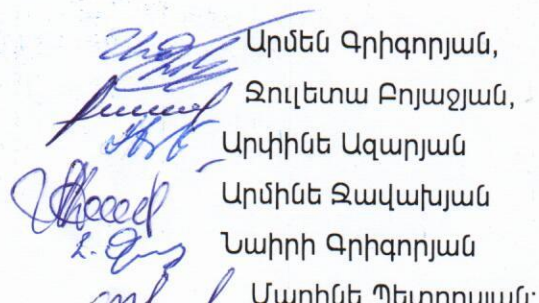 Արմեն Գրիգորյան,
Ջուլետա Բոյաջյան,
Արփինե Ազարյան
Արմինե Ջավախյան
Նաիրի Գրիգորյան
Մարինե Պետրոսյան: